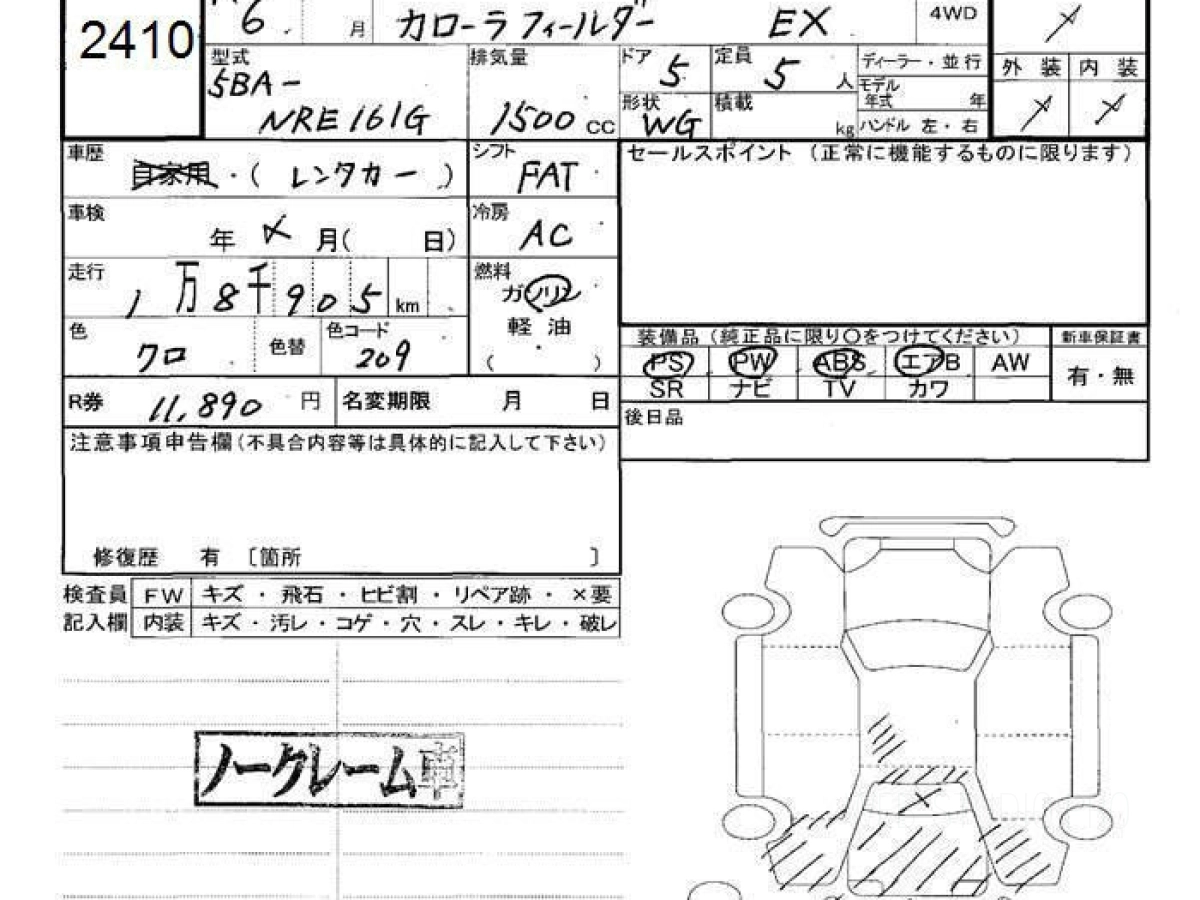 2410
6 月 カローラフィールダー EX 4WD
型式 5BA-
NRE161G
排気量 1500 cc
ドア 5
定員 5 人
ディーラー・並行
モデル年式 年
形状 WG
積載 kg
ハンドル 左・右
外装 内装
車歴 自家用・( レンタカー )
シフト FAT
セールスポイント (正常に機能するものに限ります)
車検 年 月( 日)
冷房 AC
走行 1万8千905 km
燃料 ガソリン
軽油
( )
色 クロ 色替 色コード 209
装備品 (純正品に限り○をつけてください) 新車保証書
PS PW ABS エアB AW 有・無
SR ナビ TV カワ
R券 11,890 円 名変期限 月 日
後日品
注意事項申告欄(不具合内容等は具体的に記入して下さい)
修復歴 有 〔箇所 〕
検査員 FW キズ・飛石・ヒビ割・リペア跡・×要
記入欄 内装 キズ・汚レ・コゲ・穴・スレ・キレ・破レ
ノークレーム車